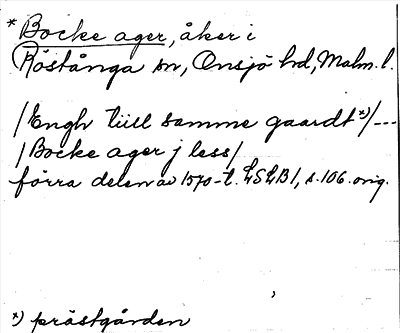 * Bocke ager, åker i
Röstånga sn, Onsjö hd, Malm. l.
/Engh tiill samme gaardt *)/---
/Bocke ager j less/
förra delen av 1570-t. LSLB 1, s. 106. orig.
*) prästgården